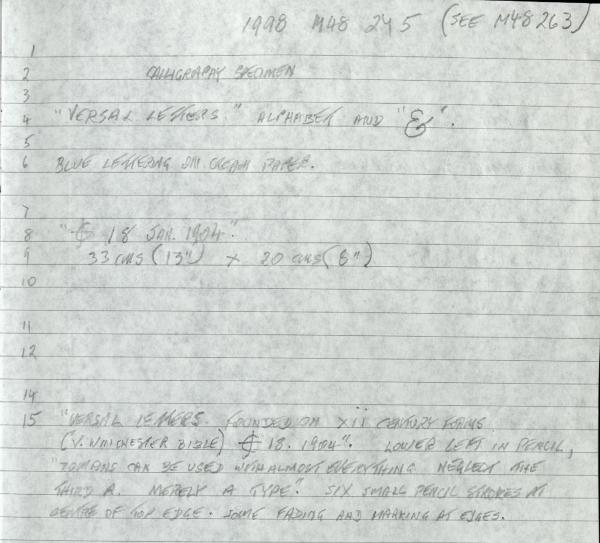 1998 M48 245 (SEE M48263)
1
2 CALLIGRAPHY SPECIMEN
3
4 "VERSAL LETTERS" ALPHABET AND "&".
5
6 BLUE LETTERING ON CREAM PAPER.
7
8 18 JAN. 1904".
9 33 CMS (13") X 20 CMS (8")
10
11
12
14
15 "VERSAL LETTERS. FOUNDED ON XII CENTURY FORMS
(V. WINCHESTER BIBLE) 18. 1904". LOWER LEFT IN PENCIL,
"ROMANS CAN BE USED WITH ALMOST EVERYTHING NEGLECT THE
THIRD A. MERELY A TYPE". SIX SMALL PENCIL STROKES AT
CENTRE OF TOP EDGE. SOME FADING AND MARKING AT EDGES.